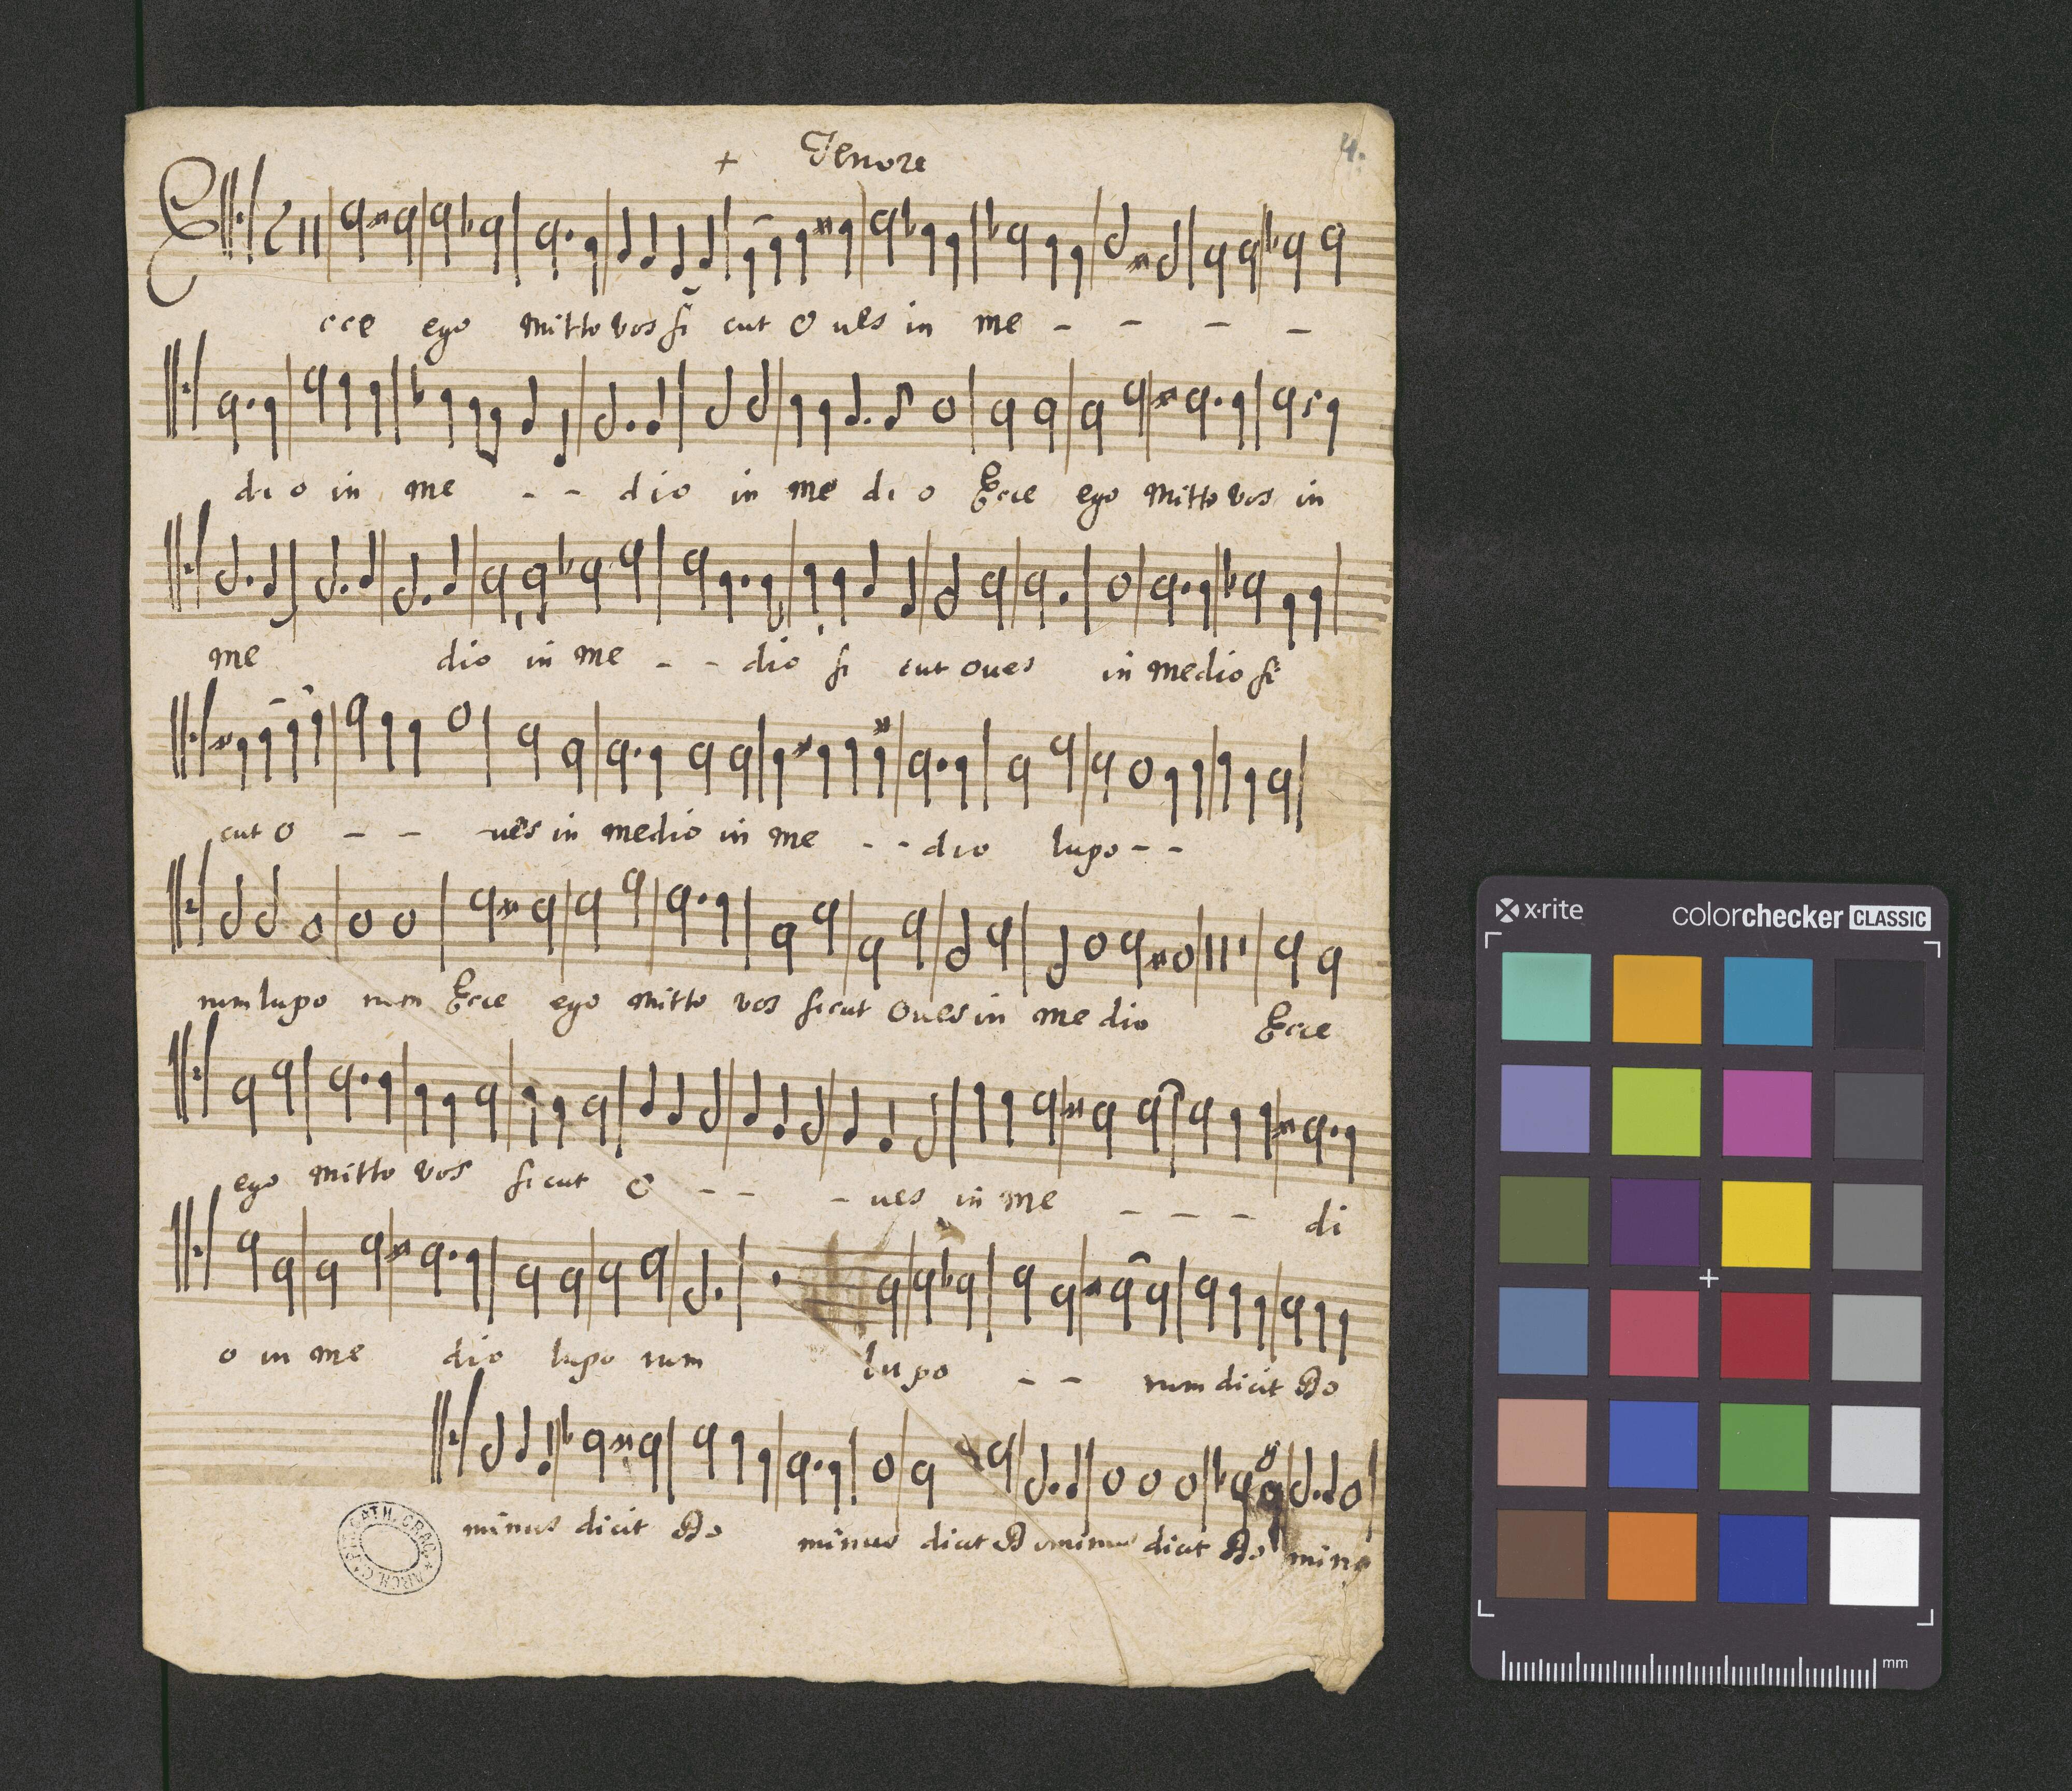 + Tenore 4.
Ecce ego mitto vos si cut o ues in me - - - -
di o in me - - dio in me di o Ecce ego mitto vos in
me dio in me - - dio si cut oues in medio si
cut o - - ues in medio in me - - dio lupo - -
rum lupo rum Ecce ego mitto vos sicut oues in me dio Ecce
ego mitto vos sicut o - - - ues in me - - - di
o in me dio lupo rum lu po - - rum dicit Do
minus dicit Do minus dicit Dominus dicit Do
x·rite colorchecker CLASSIC
mm